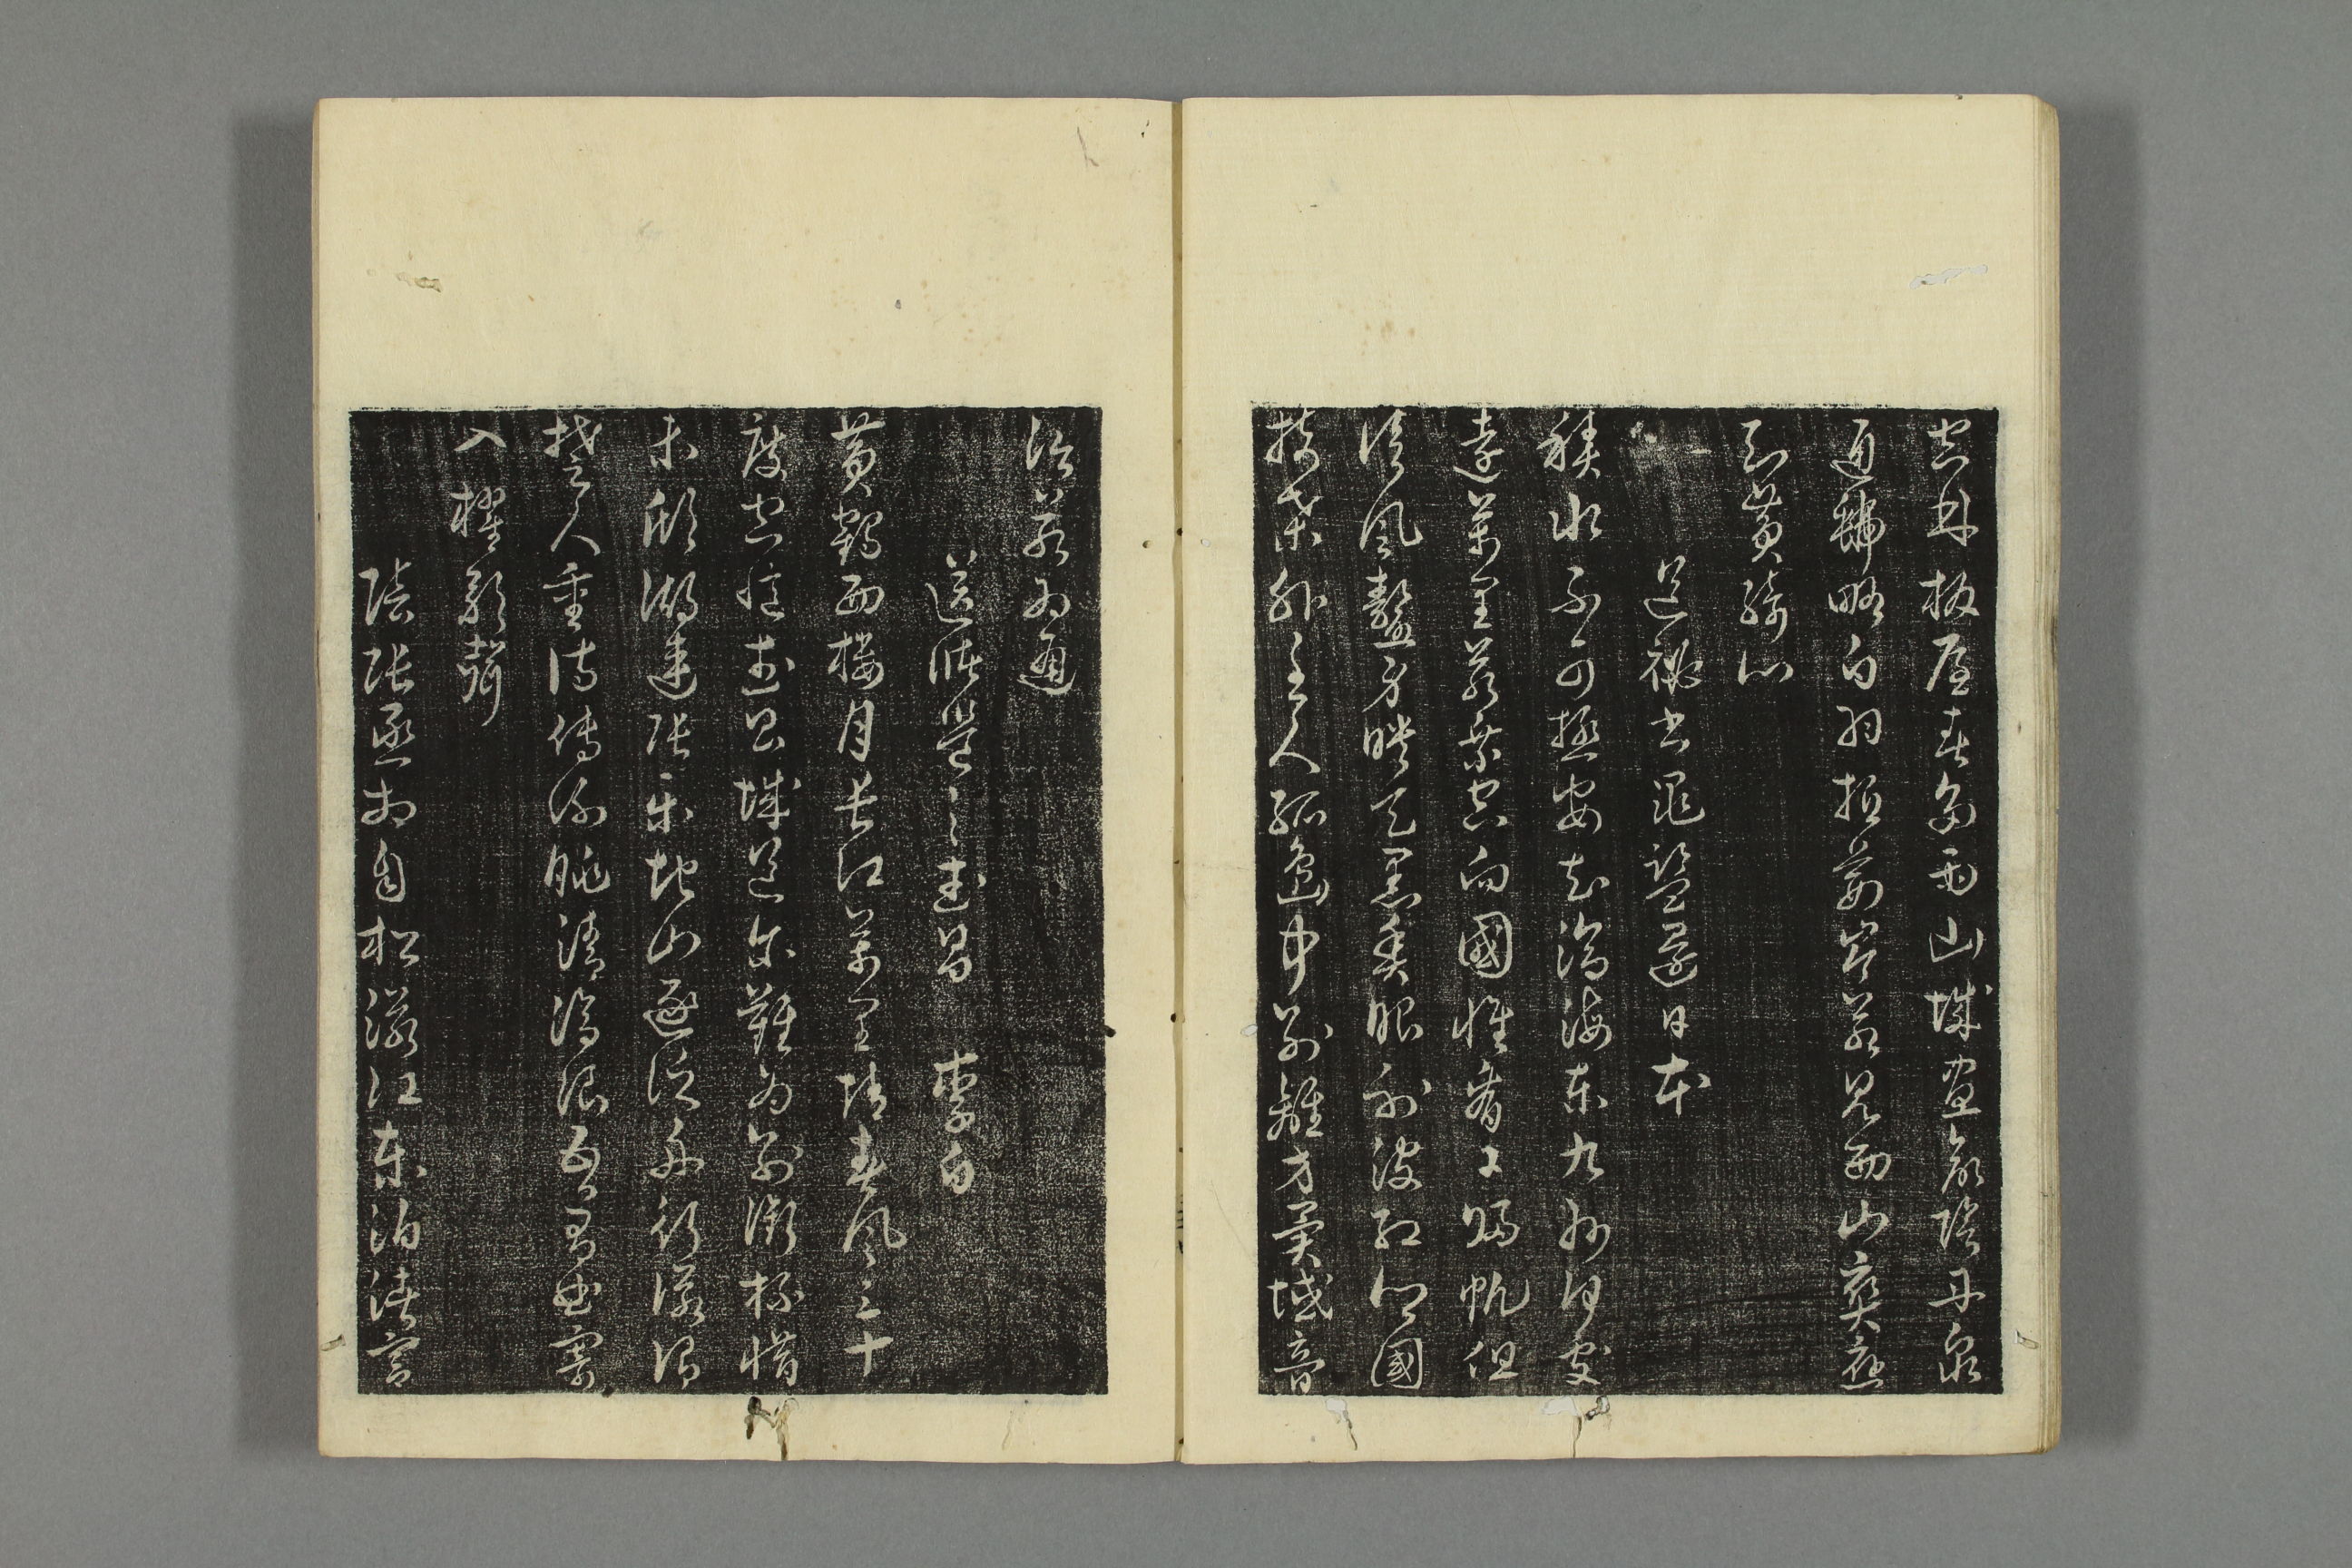 空林板屋春多雨山城晝欲陰丹泉
通虢略白羽抵荊岑若見西山爽應
知黃綺心
送秘書晁監還日本
積水不可極安知滄海東九州何處
遠萬里若乘空向國惟看日歸帆但
信風鰲身映天黑魚眼射波紅鄉國
扶桑外主人孤島中別離方異域音
信若為通
送儲邕之武昌　李白
黃鶴西樓月長江萬里情春風三十
度空憶武昌城送爾難為別銜杯惜
未傾湖連張樂地山逐泛舟行諾謂
楚人重詩傳謝朓清滄浪吾有曲寄
入櫂歌聲
陪張丞相自松滋江東泊渚宮